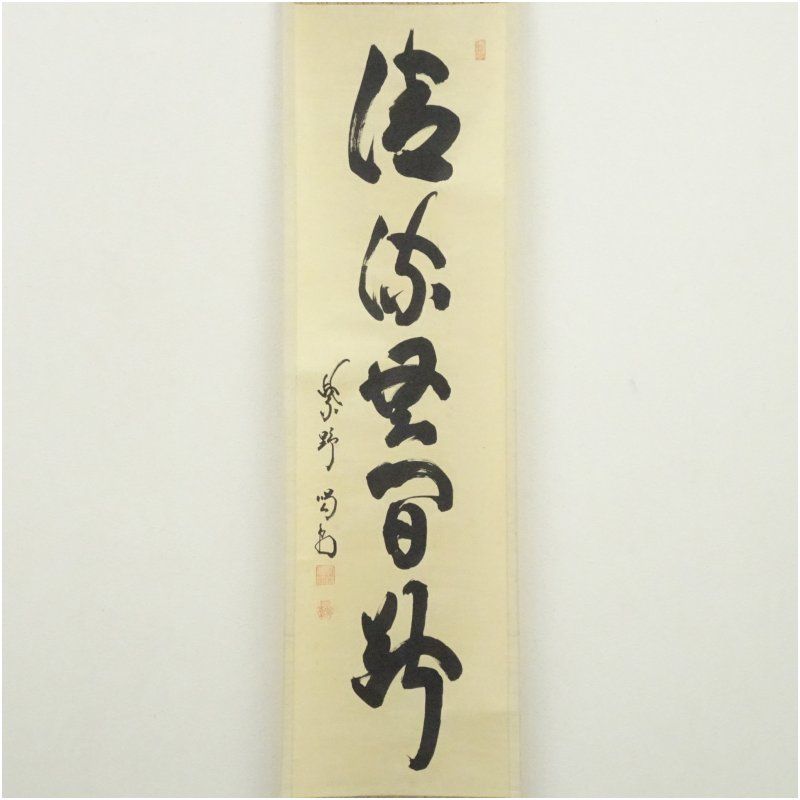 清流無間断
紫野